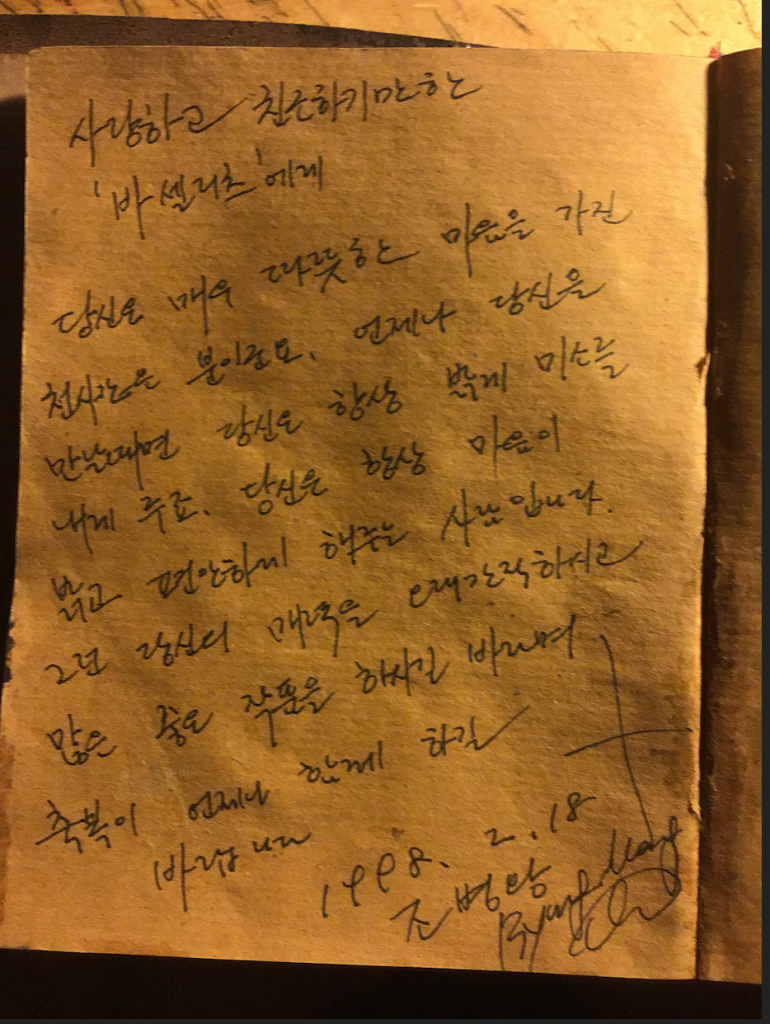 사랑하고 친근하기만한
'바셀리츠'에게
당신은 매우 따뜻한 마음을 가진
천사같은 분이군요. 언제나 당신을
만날때면 당신은 항상 밝게 미소를
내게 주죠. 당신은 항상 마음이
밝고 편안하게 해주는 사람입니다.
그런 당신의 매력을 오래간직하시고
많은 좋은 작품을 하시길 바라며
축복이 언제나 함께 하길
바랍니다
1998. 2. 18
조병왕
Byung